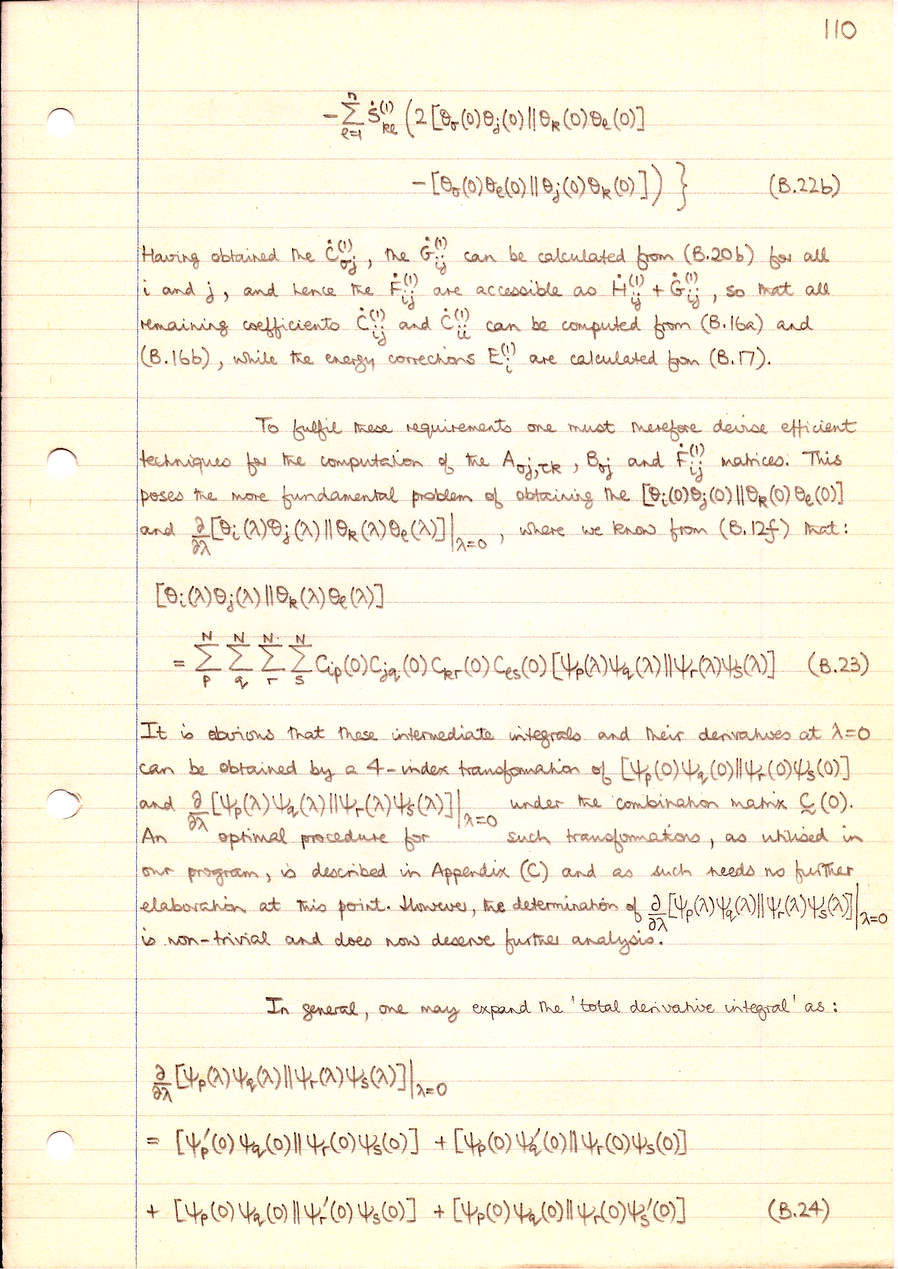 110
− Σ_{ℓ=1}^{n} Ṡ_{kℓ}^{(1)} (2[θ_σ(0)θ_j(0)||θ_k(0)θ_ℓ(0)]
−[θ_σ(0)θ_ℓ(0)||θ_j(0)θ_k(0)])} (B.22b)
Having obtained the Ċ_{σj}^{(1)}, the Ġ_{ij}^{(1)} can be calculated from (B.20b) for all
i and j, and hence the Ḟ_{ij}^{(1)} are accessible as Ḣ_{ij}^{(1)} + Ġ_{ij}^{(1)}, so that all
remaining coefficients Ċ_{ij}^{(1)} and Ċ_{ii}^{(1)} can be computed from (B.16a) and
(B.16b), while the energy corrections E_i^{(1)} are calculated from (B.17).
To fulfil these requirements one must therefore devise efficient
techniques for the computation of the A_{σj,τk}, B_{σj} and Ḟ_{ij}^{(1)} matrices. This
poses the more fundamental problem of obtaining the [θ_i(0)θ_j(0)||θ_k(0)θ_ℓ(0)]
and ∂/∂λ[θ_i(λ)θ_j(λ)||θ_k(λ)θ_ℓ(λ)]|_{λ=0}, where we know from (B.12f) that:
[θ_i(λ)θ_j(λ)||θ_k(λ)θ_ℓ(λ)]
= Σ_p^N Σ_q^N Σ_r^N Σ_s^N C_{ip}(0)C_{jq}(0)C_{kr}(0)C_{ℓs}(0)[ψ_p(λ)ψ_q(λ)||ψ_r(λ)ψ_s(λ)] (B.23)
It is obvious that these intermediate integrals and their derivatives at λ=0
can be obtained by a 4-index transformation of [ψ_p(0)ψ_q(0)||ψ_r(0)ψ_s(0)]
and ∂/∂λ[ψ_p(λ)ψ_q(λ)||ψ_r(λ)ψ_s(λ)]|_{λ=0} under the combination matrix C(0).
An optimal procedure for such transformations, as utilised in
our program, is described in Appendix (C) and as such needs no further
elaboration at this point. However, the determination of ∂/∂λ[ψ_p(λ)ψ_q(λ)||ψ_r(λ)ψ_s(λ)]|_{λ=0}
is non-trivial and does now deserve further analysis.
In general, one may expand the 'total derivative integral' as:
∂/∂λ[ψ_p(λ)ψ_q(λ)||ψ_r(λ)ψ_s(λ)]|_{λ=0}
= [ψ_p'(0)ψ_q(0)||ψ_r(0)ψ_s(0)] + [ψ_p(0)ψ_q'(0)||ψ_r(0)ψ_s(0)]
+ [ψ_p(0)ψ_q(0)||ψ_r'(0)ψ_s(0)] + [ψ_p(0)ψ_q(0)||ψ_r(0)ψ_s'(0)] (B.24)